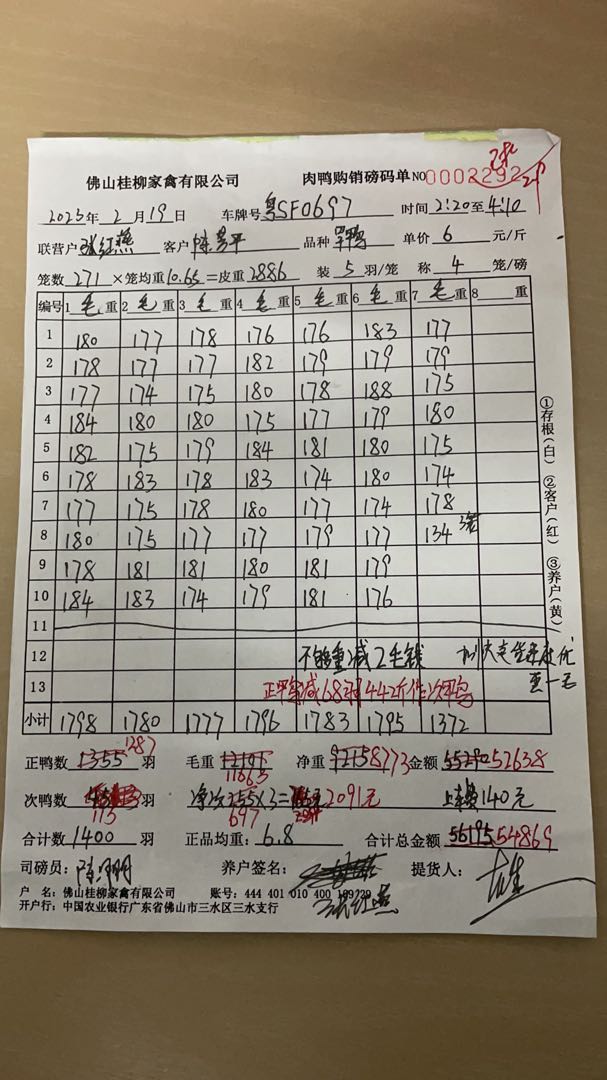 佛山桂柳家禽有限公司 肉鸭购销磅码单 NO 0002292
2025年 2月 19日 车牌号 粤SF0697 时间 2:20至4:10
联营户 张红燕 客户 陈 平 品种 单价 6 元/斤
笼数 271 ×笼均重 10.65 =皮重 2886 装 5 羽/笼 称 4 笼/磅
编号 1 毛 重 2 毛 重 3 毛 重 4 毛 重 5 毛 重 6 毛 重 7 毛 重 8 重
1 180 177 178 176 176 183 177
2 178 177 177 182 179 179 179
3 177 174 175 180 178 188 175
4 184 180 180 175 177 179 180
5 182 175 179 184 181 180 175
6 178 183 178 183 174 180 174
7 177 175 178 180 177 174 178
8 180 175 177 177 179 177 134 3笼
9 178 181 181 180 181 179
10 184 183 174 179 181 176
11
12 不够重减2毛钱
13 正鸭减68羽442斤作次鸭
小计 1798 1780 1777 1796 1783 1795 1372
正鸭数 1355 1287 羽 毛重 12101 11663 净重 9215 8773 金额 55290 52638
次鸭数 113 羽 净次 255×3= 697 2091元 上车费140元
合计数 1400 羽 正品均重: 6.8 合计总金额 56195 54869
司磅员: 养户签名: 张红燕 提货人:
户 名: 佛山桂柳家禽有限公司 账号: 444 401 010 400 199729
开户行: 中国农业银行广东省佛山市三水区三水支行
①存根(白) ②客户(红) ③养户(黄)